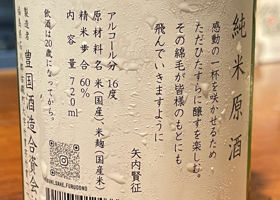 純米原酒
感動の一杯を咲かせるため
ただひたすらに醸すを楽しむ。
その綿毛が皆様のもとにも
飛んでいきますように
矢内賢征
アルコール分 16度
原材料名 米(国産)・米麹(国産米)
精米歩合 60%
内容量 720ml
製造者 豊国酒造合資会
飲酒は20歳になってから。